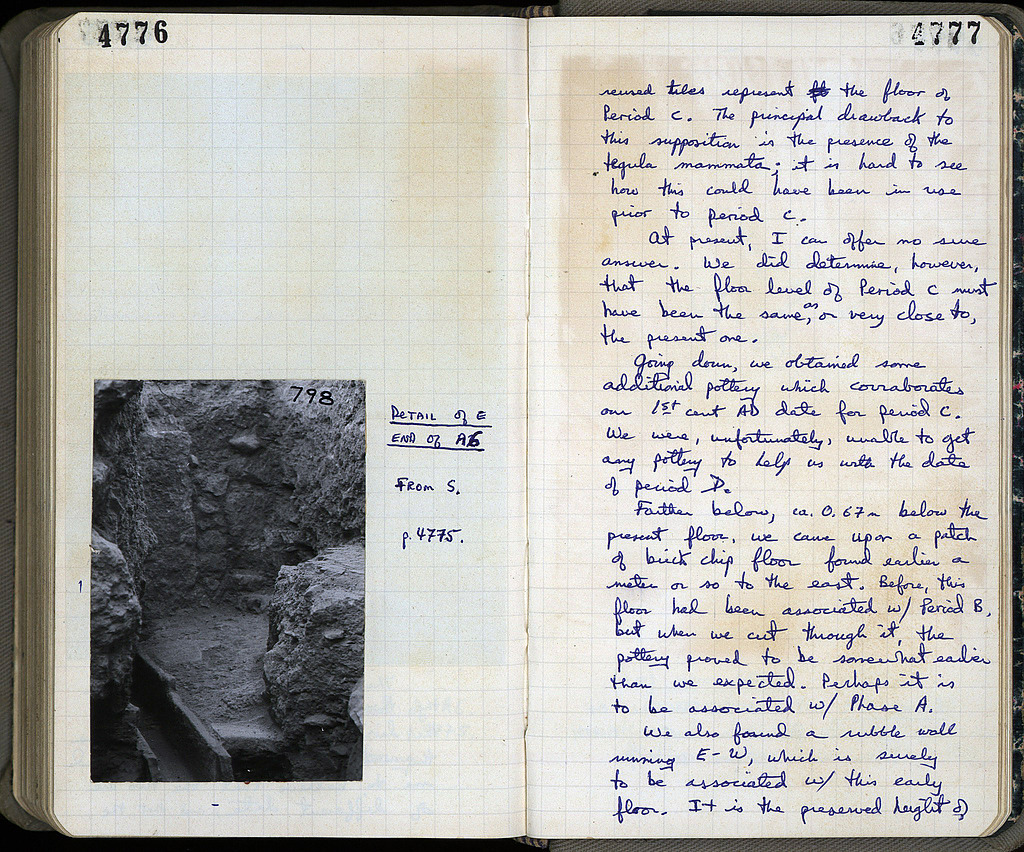 4776
798
DETAIL of E
END of A6
FROM S.
p. 4775.
1
4777
reused tiles represent the floor of
Period C. The principal drawback to
this supposition is the presence of the
tegula mammata; it is hard to see
how this could have been in use
prior to period C.
At present, I can offer no sure
answer. We did determine, however,
that the floor level of Period C must
have been the same, as or very close to,
the present one.
Going down, we obtained some
additional pottery which corraborates
our 1st cent AD date for period C.
We were, unfortunately, unable to get
any pottery to help us with the date
of period D.
Farther below, ca. 0.67m below the
present floor, we came upon a patch
of brick chip floor found earlier a
meter or so to the east. Before, this
floor had been associated w/ Period B,
but when we cut through it, the
pottery proved to be somewhat earlier
than we expected. Perhaps it is
to be associated w/ Phase A.
We also found a rubble wall
running E-W, which is surely
to be associated w/ this early
floor. It is the preserved height of